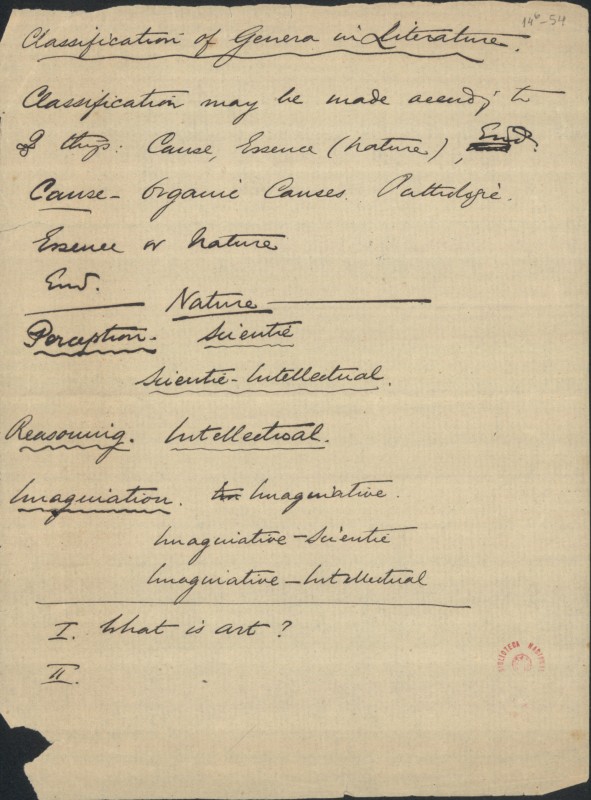 14⁶-54
Classification of Genera in Literature.
Classification may be made accordg to
3 things: Cause, Essence (Nature), End.
Cause – Organic Causes. Pathologic.
Essence or Nature
End.
Nature
Perception. Scientic
Scientic-Intellectual.
Reasoning. Intellectual.
Imagination. Im Imaginative.
Imaginative-Scientic
Imaginative-Intellectual
I. What is art?
II.
BIBLIOTECA NACIONAL